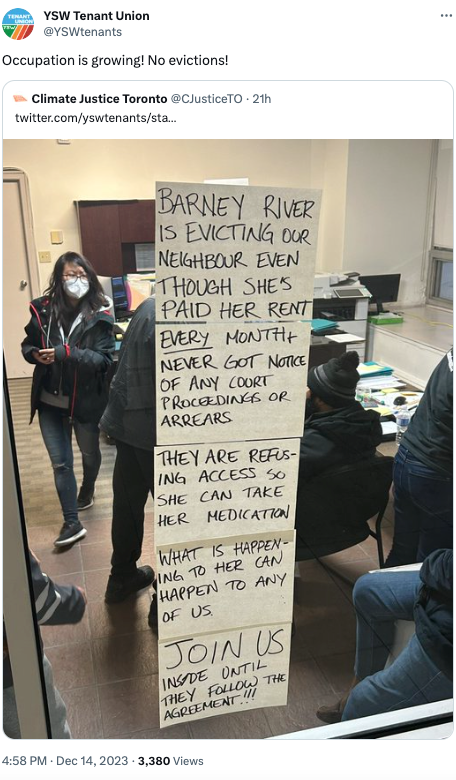 TENANT
UNION
YSW
YSW Tenant Union
@YSWtenants
Occupation is growing! No evictions!
Climate Justice Toronto @CJusticeTO · 21h
twitter.com/yswtenants/sta...
BARNEY RIVER
IS EVICTING OUR
NEIGHBOUR EVEN
THOUGH SHE'S
PAID HER RENT
EVERY MONTH +
NEVER GOT NOTICE
OF ANY COURT
PROCEEDINGS OR
ARREARS
THEY ARE REFUS-
ING ACCESS SO
SHE CAN TAKE
HER MEDICATION
WHAT IS HAPPEN-
ING TO HER CAN
HAPPEN TO ANY
OF US.
JOIN US
INSIDE UNTIL
THEY FOLLOW THE
AGREEMENT!!!
4:58 PM · Dec 14, 2023 · 3,380 Views